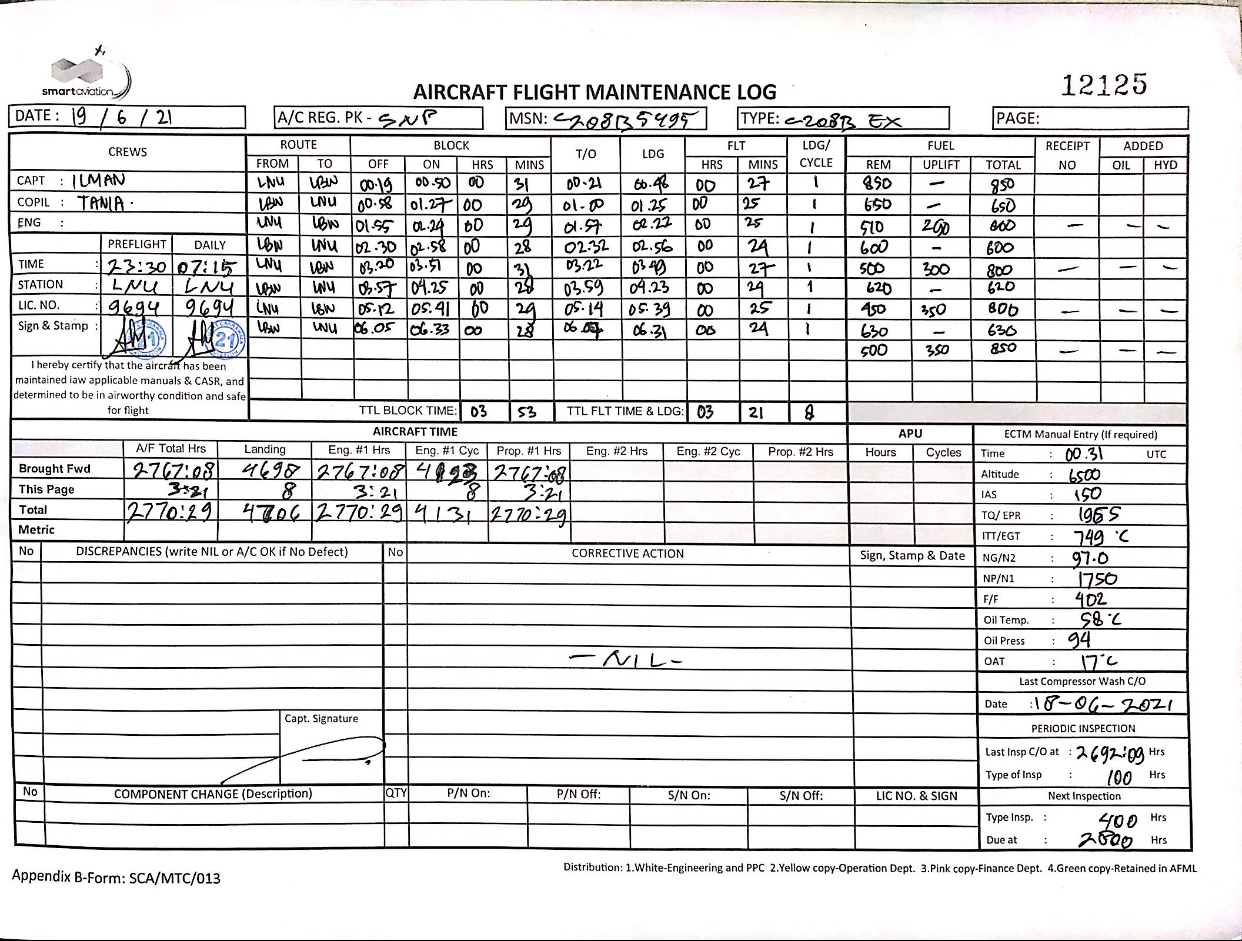 smartaviation
AIRCRAFT FLIGHT MAINTENANCE LOG
12125
DATE : 19 / 6 / 21 A/C REG. PK - SNP MSN: C208B5495 TYPE: C208B EX PAGE:
CREWS ROUTE BLOCK T/O LDG FLT LDG/ CYCLE FUEL RECEIPT NO ADDED
FROM TO OFF ON HRS MINS HRS MINS REM UPLIFT TOTAL OIL HYD
CAPT : ILMAN LNU LBW 00.19 00.50 00 31 00.21 00.48 00 27 1 850 — 850
COPIL : TANIA. LBW LNU 00.58 01.27 00 29 01.00 01.25 00 25 1 650 — 650
ENG : LNU LBW 01.55 02.24 00 29 01.57 02.22 00 25 1 510 290 800 — — —
PREFLIGHT DAILY LBW LNU 02.30 02.58 00 28 02.32 02.56 00 24 1 600 - 600
TIME : 23:30 07:15 LNU LBW 03.20 03.51 00 31 03.22 03.49 00 27 1 500 300 800 — — —
STATION : LNU LNU LBW LNU 03.57 04.25 00 28 03.59 04.23 00 24 1 620 — 620
LIC. NO. : 9694 9694 LNU LBW 05.12 05.41 00 29 05.14 05.39 00 25 1 450 350 800 — — —
Sign & Stamp : LBW LNU 06.05 06.33 00 28 06.07 06.31 00 24 1 630 — 630
500 350 850 — — —
I hereby certify that the aircraft has been
maintained iaw applicable manuals & CASR, and
determined to be in airworthy condition and safe
for flight
TTL BLOCK TIME: 03 53 TTL FLT TIME & LDG: 03 21 8
AIRCRAFT TIME APU ECTM Manual Entry (If required)
A/F Total Hrs Landing Eng. #1 Hrs Eng. #1 Cyc Prop. #1 Hrs Eng. #2 Hrs Eng. #2 Cyc Prop. #2 Hrs Hours Cycles
Time : 00.31 UTC
Brought Fwd 2767:08 4698 2767:08 4123 2767:08
Altitude : 6500
This Page 3:21 8 3:21 8 3:21
IAS : 150
Total 2770:29 4706 2770:29 4131 2770:29
TQ/ EPR : 1965
Metric
ITT/EGT : 749 °C
No DISCREPANCIES (write NIL or A/C OK if No Defect) No CORRECTIVE ACTION Sign, Stamp & Date
NG/N2 : 97.0
NP/N1 : 1750
F/F : 402
Oil Temp. : 58 °C
Oil Press : 94
— NIL -
OAT : 17 °C
Last Compressor Wash C/O
Date : 18-06-2021
Capt. Signature
PERIODIC INSPECTION
Last Insp C/O at : 2692:09 Hrs
Type of Insp : 100 Hrs
No COMPONENT CHANGE (Description) QTY P/N On: P/N Off: S/N On: S/N Off: LIC NO. & SIGN
Next Inspection
Type Insp. : 400 Hrs
Due at : 2800 Hrs
Distribution: 1.White-Engineering and PPC 2.Yellow copy-Operation Dept. 3.Pink copy-Finance Dept. 4.Green copy-Retained in AFML
Appendix B-Form: SCA/MTC/013